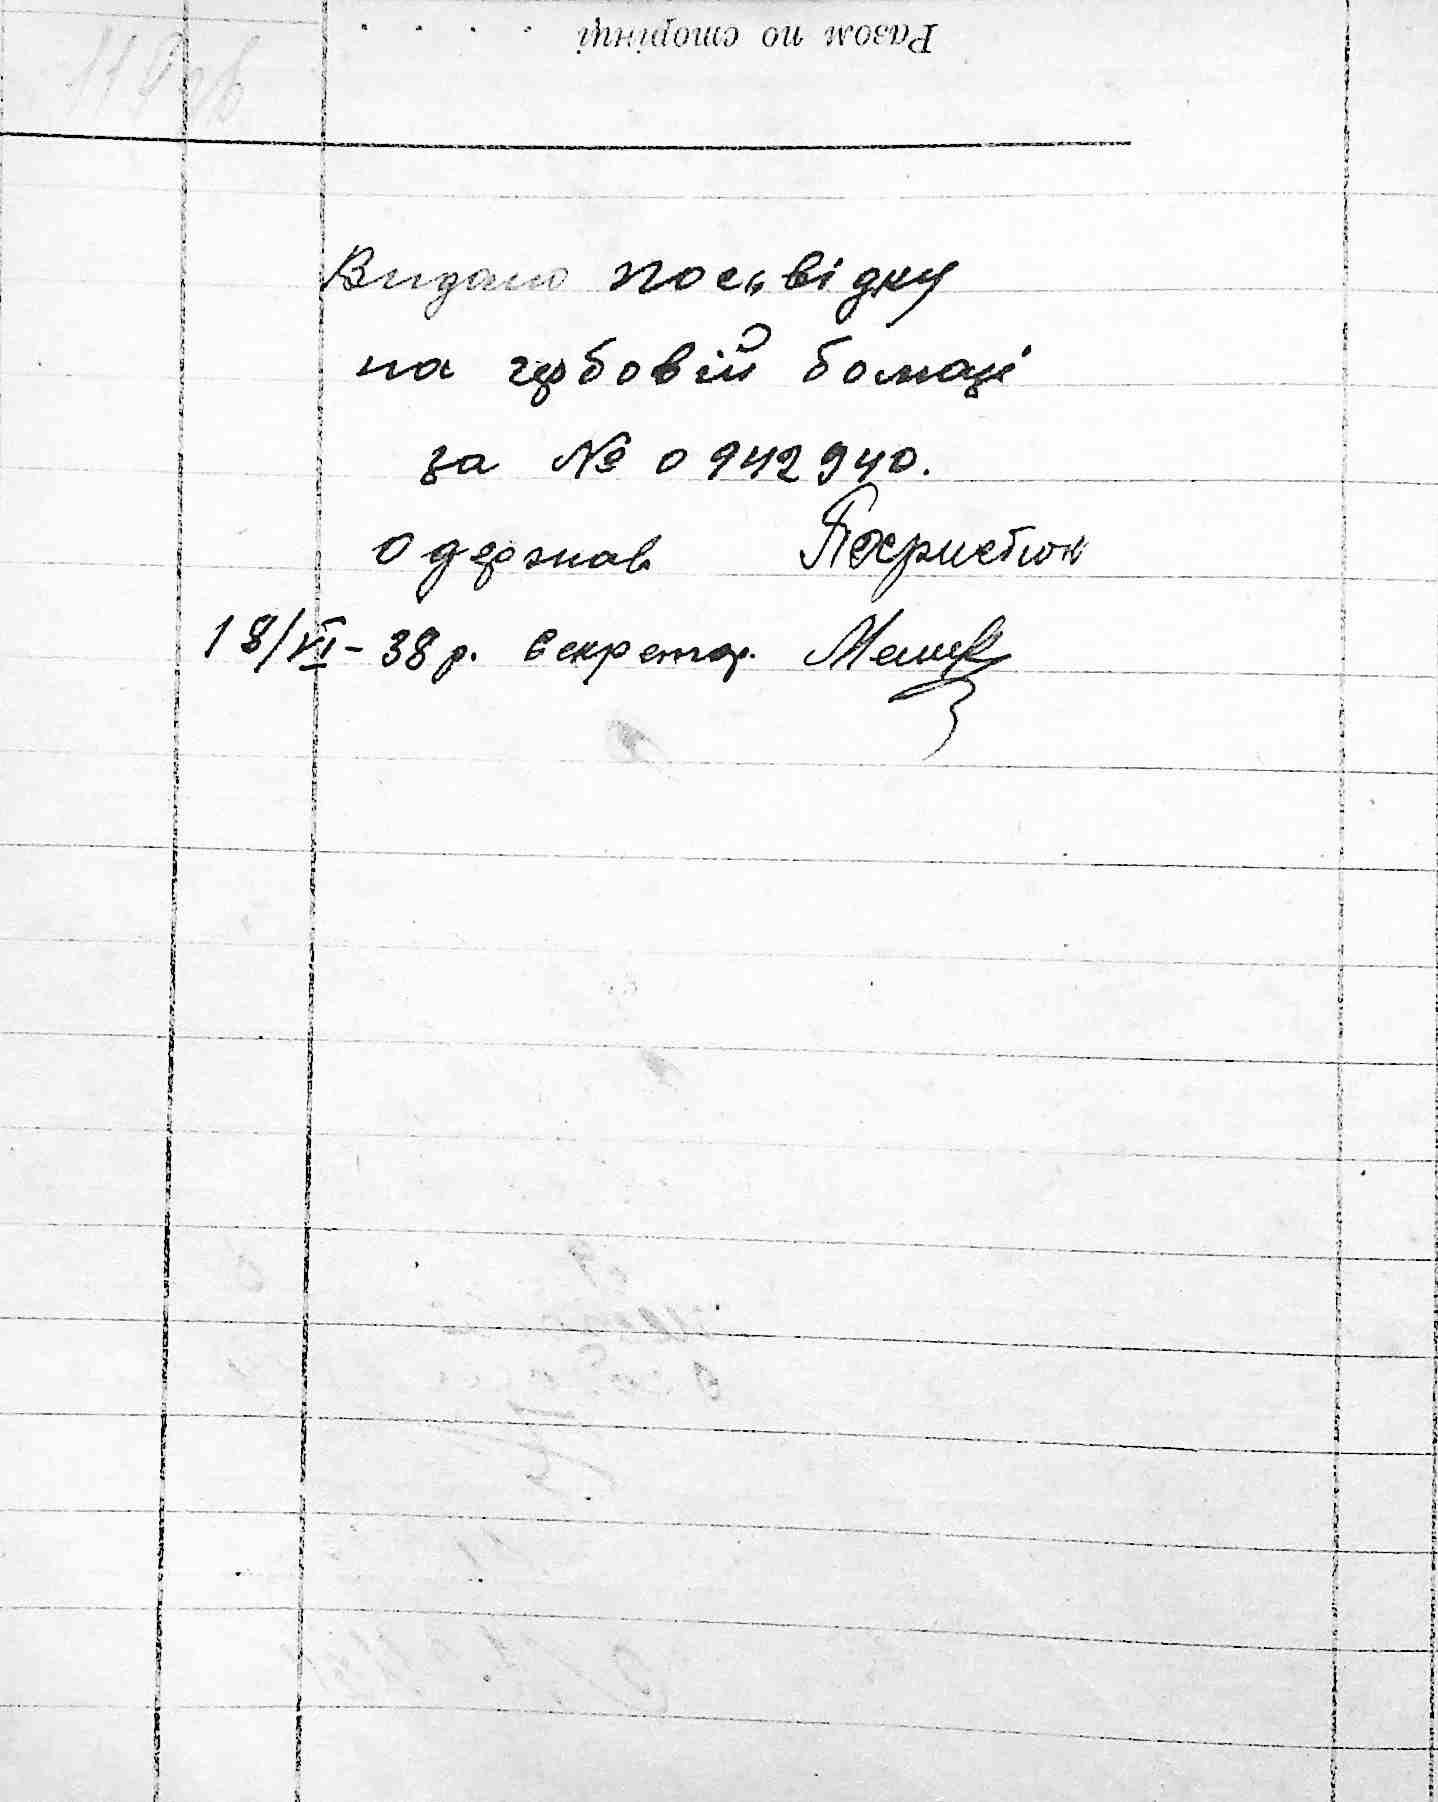 Разом по сторінці . . . . .
Видано пос„відку
на гербовій бомазі
за № 0942940.
Одержав
18/VI - 38 р. Секретар.